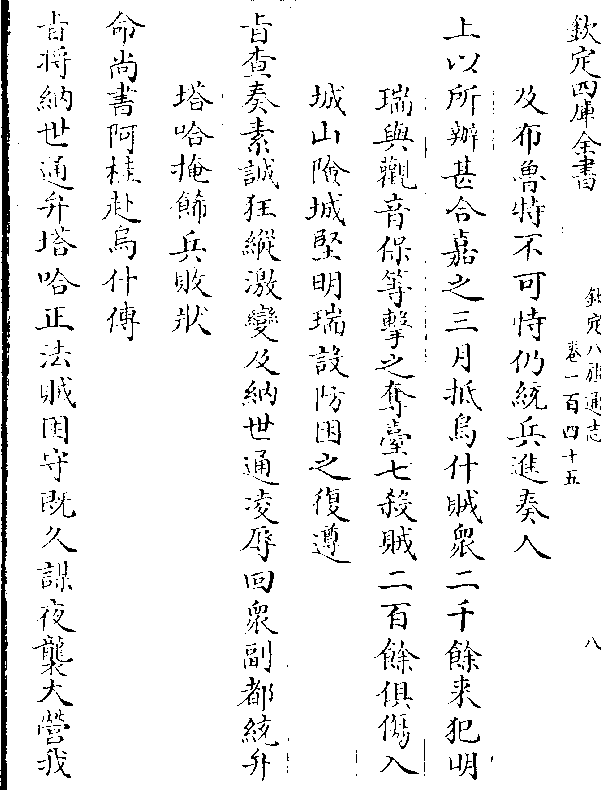 欽定四庫全書
欽定八旗通志
卷一百四十五
八
及布魯特不可恃仍統兵進奏入
上以所辦甚合嘉之三月抵烏什賊衆二千餘来犯明
瑞與觀音保等擊之奪臺七殺賊二百餘俱傷入
城山險城堅明瑞設防困之復遵
㫖查奏素誠狂縱激變及納世通凌辱回衆副都統弁
塔哈掩飾兵敗狀
命尚書阿桂赴烏什傳
㫖将納世通弁塔哈正法賊困守既久謀夜襲大營我